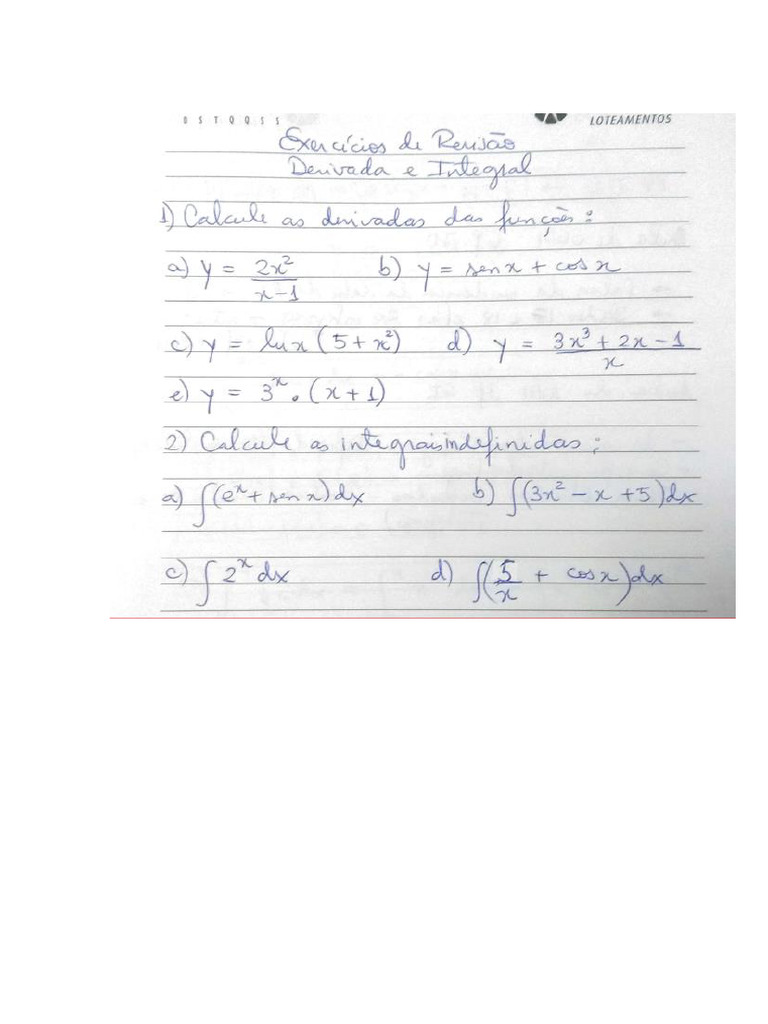 D S T Q Q S S LOTEAMENTOS
Exercícios de Revisão
Derivada e Integral
1) Calcule as derivadas das funções:
a) y = 2x²/(x-1) b) y = sen x + cos x
c) y = ln x (5 + x²) d) y = (3x³ + 2x - 1)/x
e) y = 3ˣ . (x + 1)
2) Calcule as integrais indefinidas:
a) ∫(eˣ + sen x)dx b) ∫(3x² - x + 5)dx
c) ∫2ˣ dx d) ∫(5/x + cos x)dx